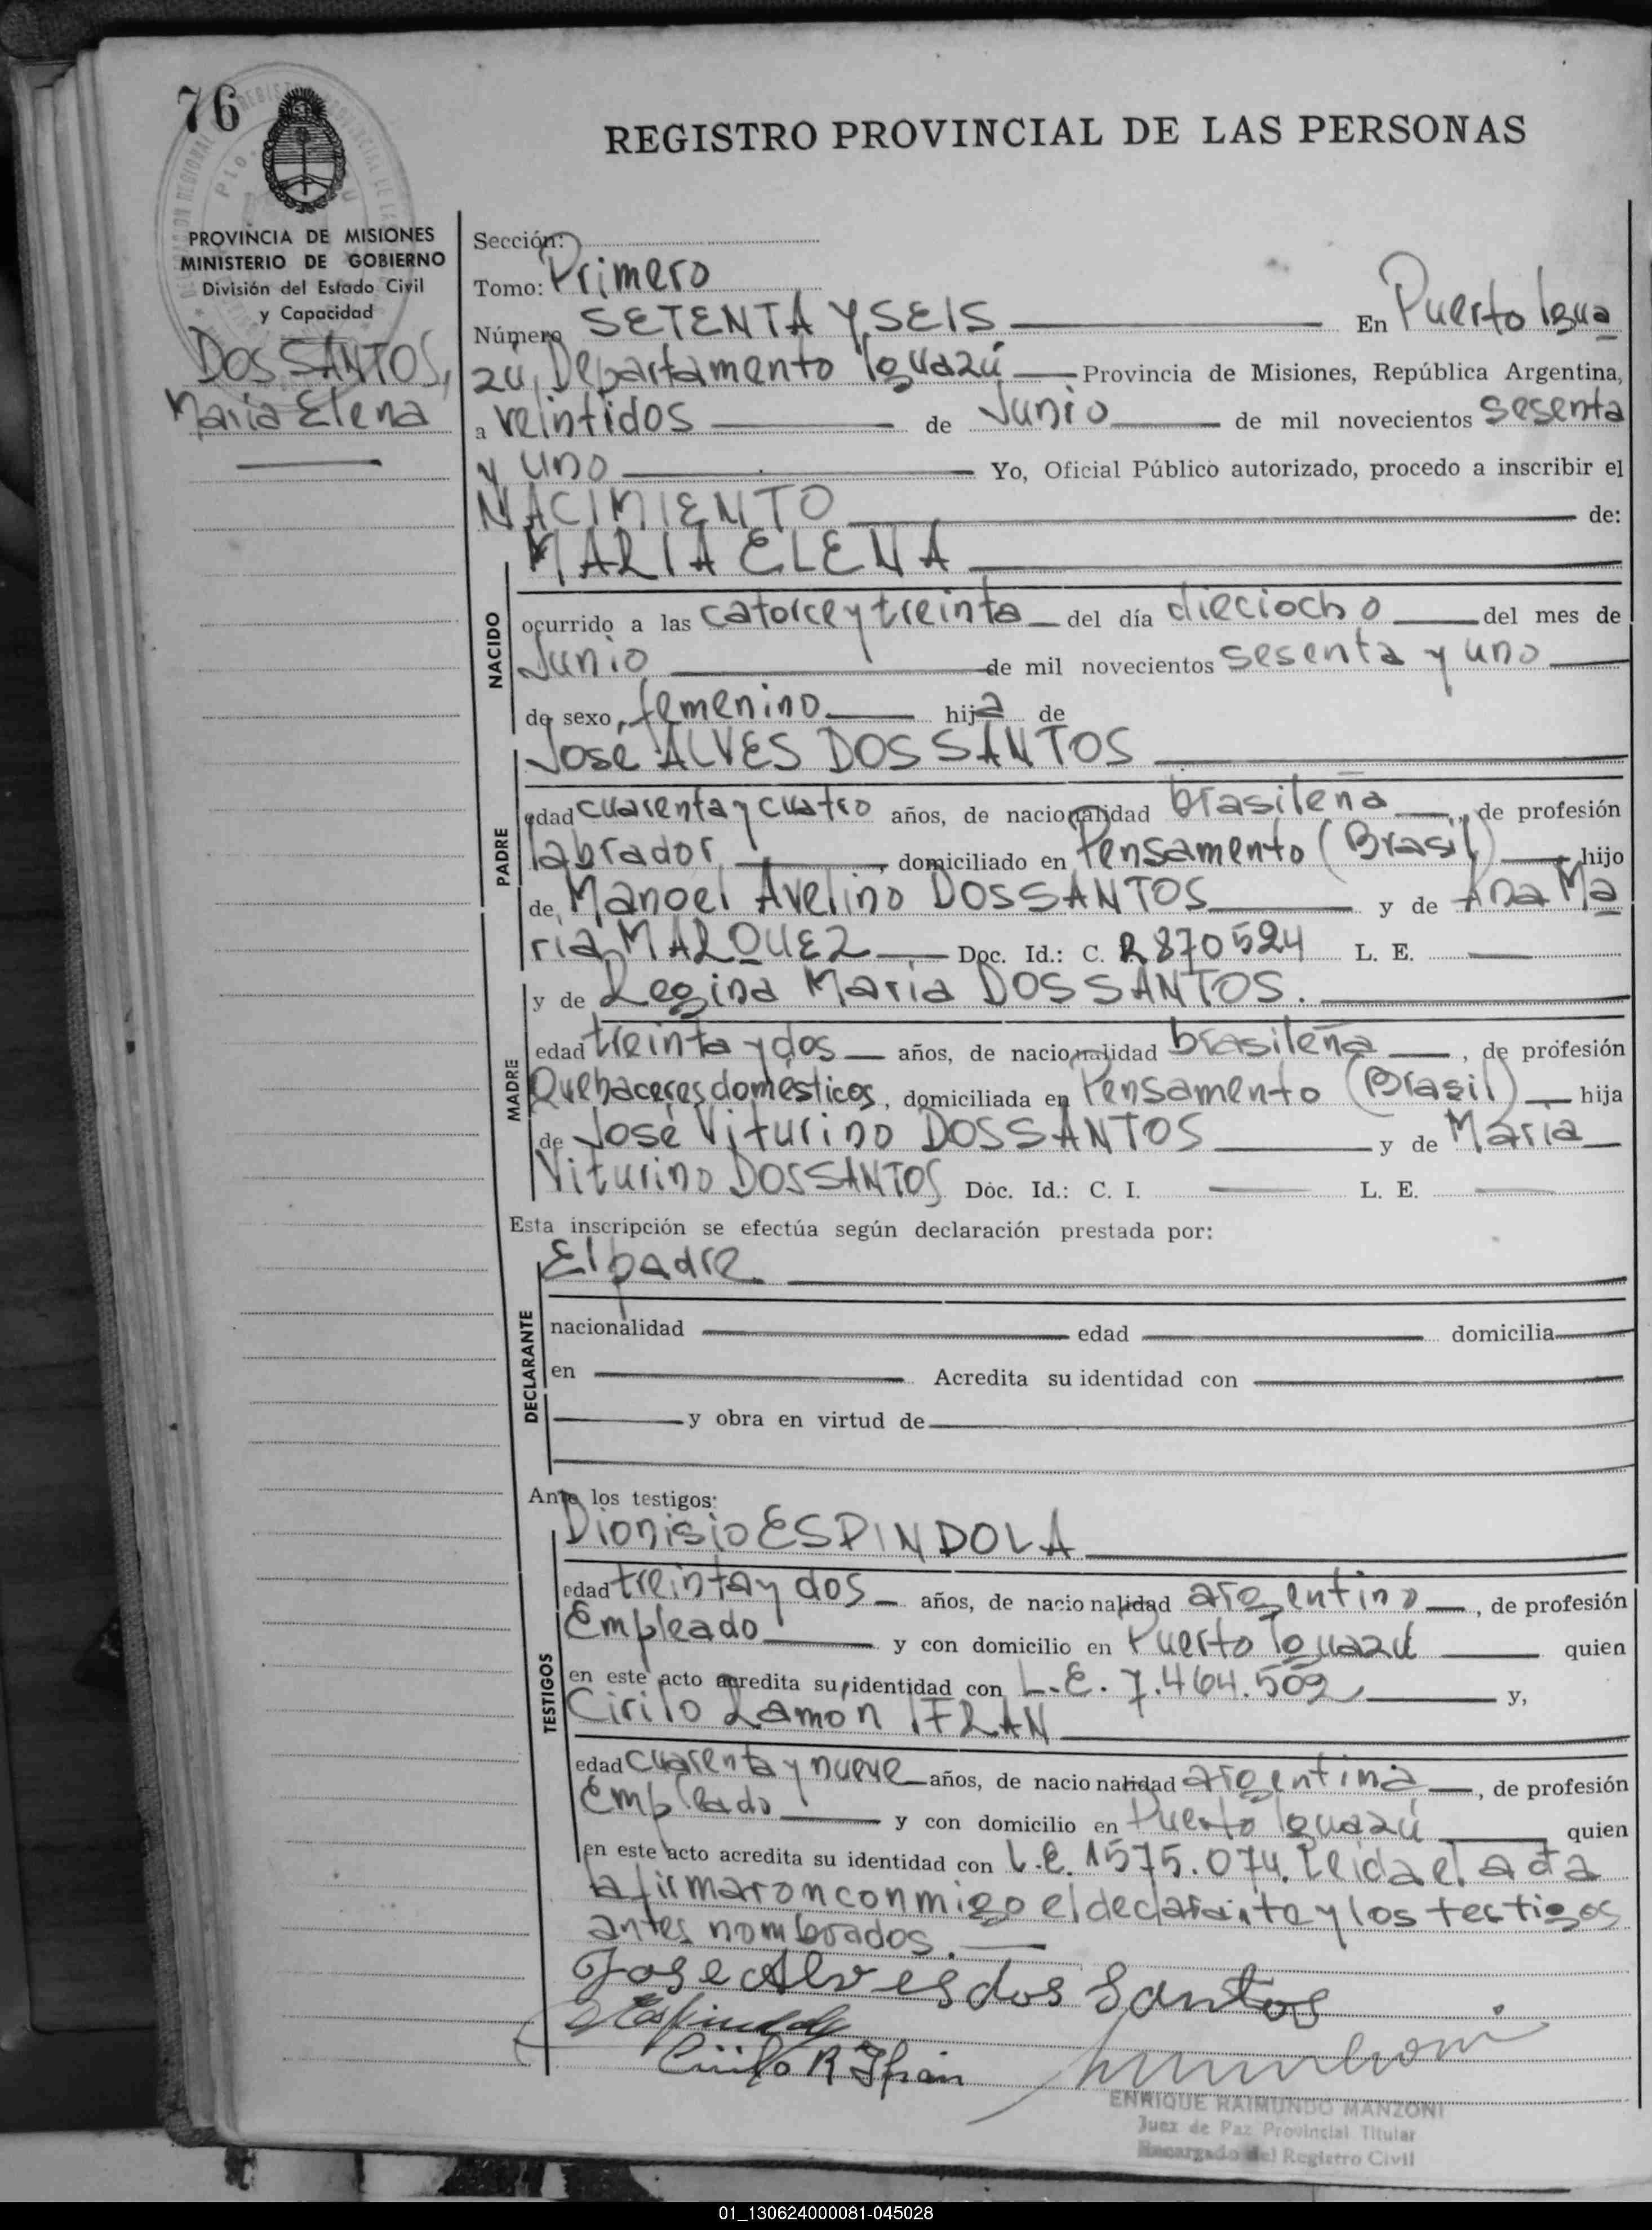 76
REGISTRO PROVINCIAL DE LAS PERSONAS
PROVINCIA DE MISIONES
MINISTERIO DE GOBIERNO
División del Estado Civil
y Capacidad
DOS SANTOS,
Maria Elena
Sección:
Tomo: Primero
Número SETENTA Y SEIS En Puerto Igua
zú, Departamento Iguazú Provincia de Misiones, República Argentina,
a veintidos de Junio de mil novecientos sesenta
y uno Yo, Oficial Público autorizado, procedo a inscribir el
NACIMIENTO de:
MARIA ELENA
NACIDO
ocurrido a las catorce y treinta del día dieciocho del mes de
Junio de mil novecientos sesenta y uno
de sexo femenino hija de
José ALVES DOS SANTOS
PADRE
edad cuarenta y cuatro años, de nacionalidad brasileña, de profesión
labrador, domiciliado en Pensamento (Brasil) hijo
de Manoel Avelino DOS SANTOS y de Ana Ma
ria MARQUEZ Doc. Id.: C. R 870524 L. E.
y de Regina Maria DOS SANTOS.
MADRE
edad treinta y dos años, de nacionalidad brasileña, de profesión
Quehaceres domésticos, domiciliada en Pensamento (Brasil) hija
de José Viturino DOS SANTOS y de Maria
Viturino DOS SANTOS Doc. Id.: C. I. L. E.
Esta inscripción se efectúa según declaración prestada por:
El padre.
DECLARANTE
nacionalidad edad domicilia
en Acredita su identidad con
y obra en virtud de
Ante los testigos:
Dionisio ESPINDOLA
TESTIGOS
edad treinta y dos años, de nacionalidad argentino, de profesión
Empleado y con domicilio en Puerto Iguazú quien
en este acto acredita su identidad con L.E. 7.464.502 y,
Cirilo Ramon IFRAN
edad cuarenta y nueve años, de nacionalidad argentina, de profesión
Empleado y con domicilio en Puerto Iguazú quien
en este acto acredita su identidad con L.E. 1575.074. Leida el acta
la firmaron conmigo el declarante y los testigos
antes nombrados.
Jose Alves dos Santos
Espindola
Cirilo R Ifran
ENRIQUE RAIMUNDO MANZONI
Juez de Paz Provincial Titular
Encargado del Registro Civil
01_130624000081-045028